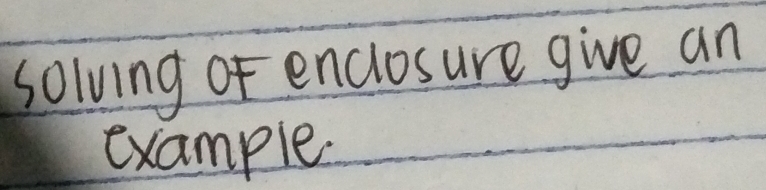 solving of enclosure give an
example.